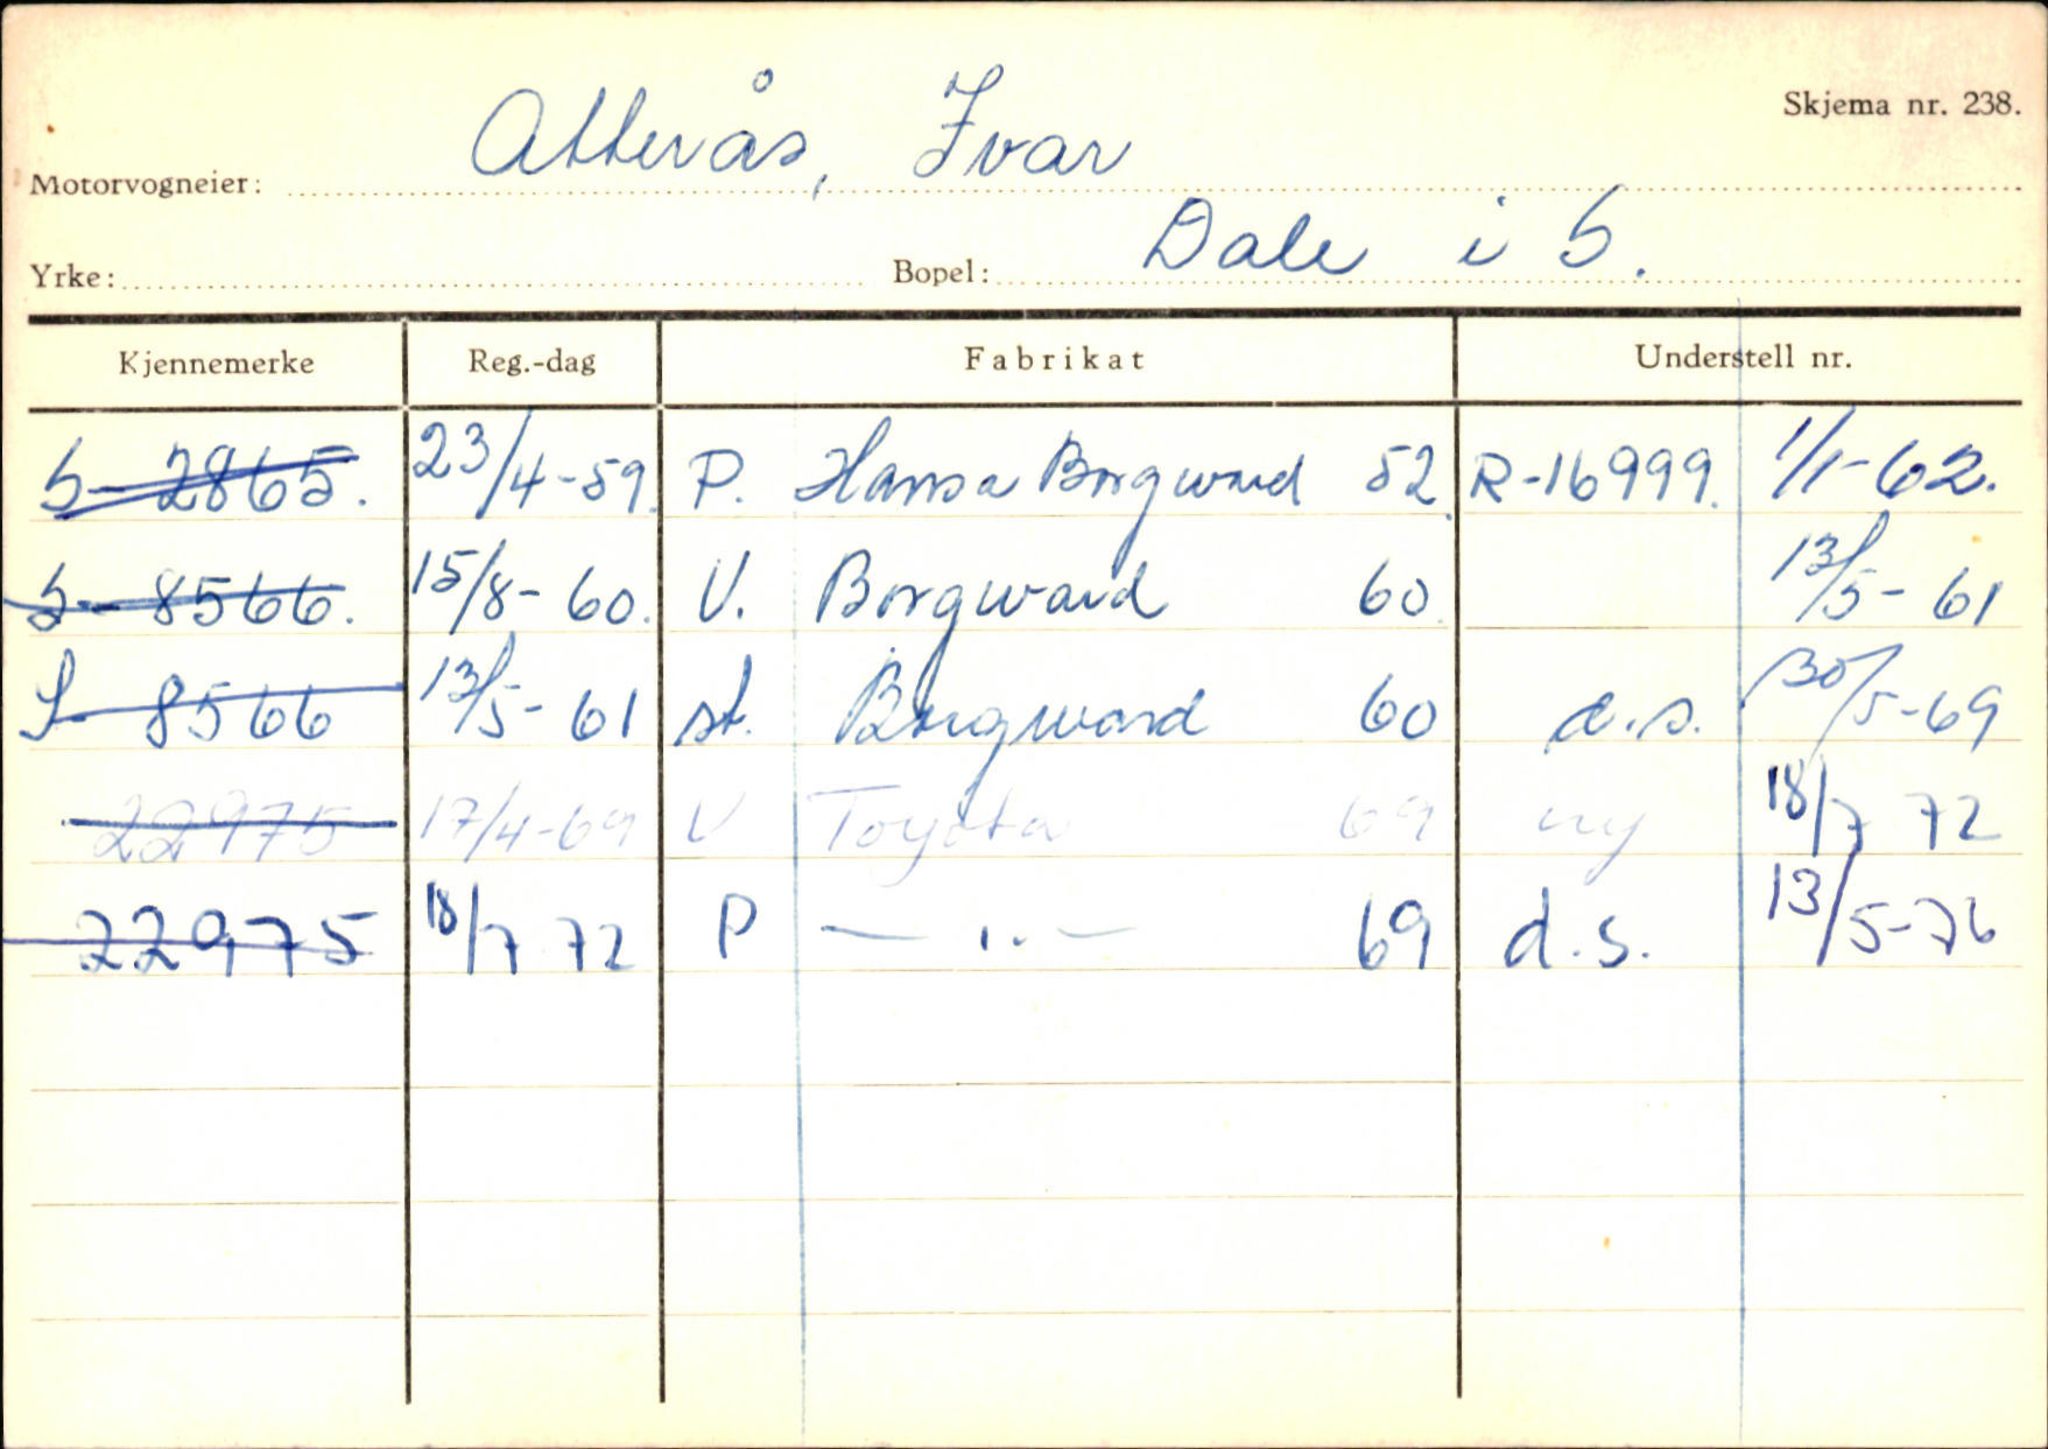 Skjema nr. 238.
Motorvogneier: Atterås, Ivar
Yrke: Bopel: Dale i S.
Kjennemerke Reg.-dag Fabrikat Understell nr.
S-2865. 23/4-59. P. Hansa Borgward 52. R-16999. 1/1-62.
S-8566. 15/8-60. V. Borgward 60. 13/5-61
S-8566 13/5-61 st. Borgward 60 d.s. 30/5-69
22975 17/4-69 V Toyota 69 ny 18/7 72
22975 18/7 72 P — „ — 69 d.s. 13/5-76